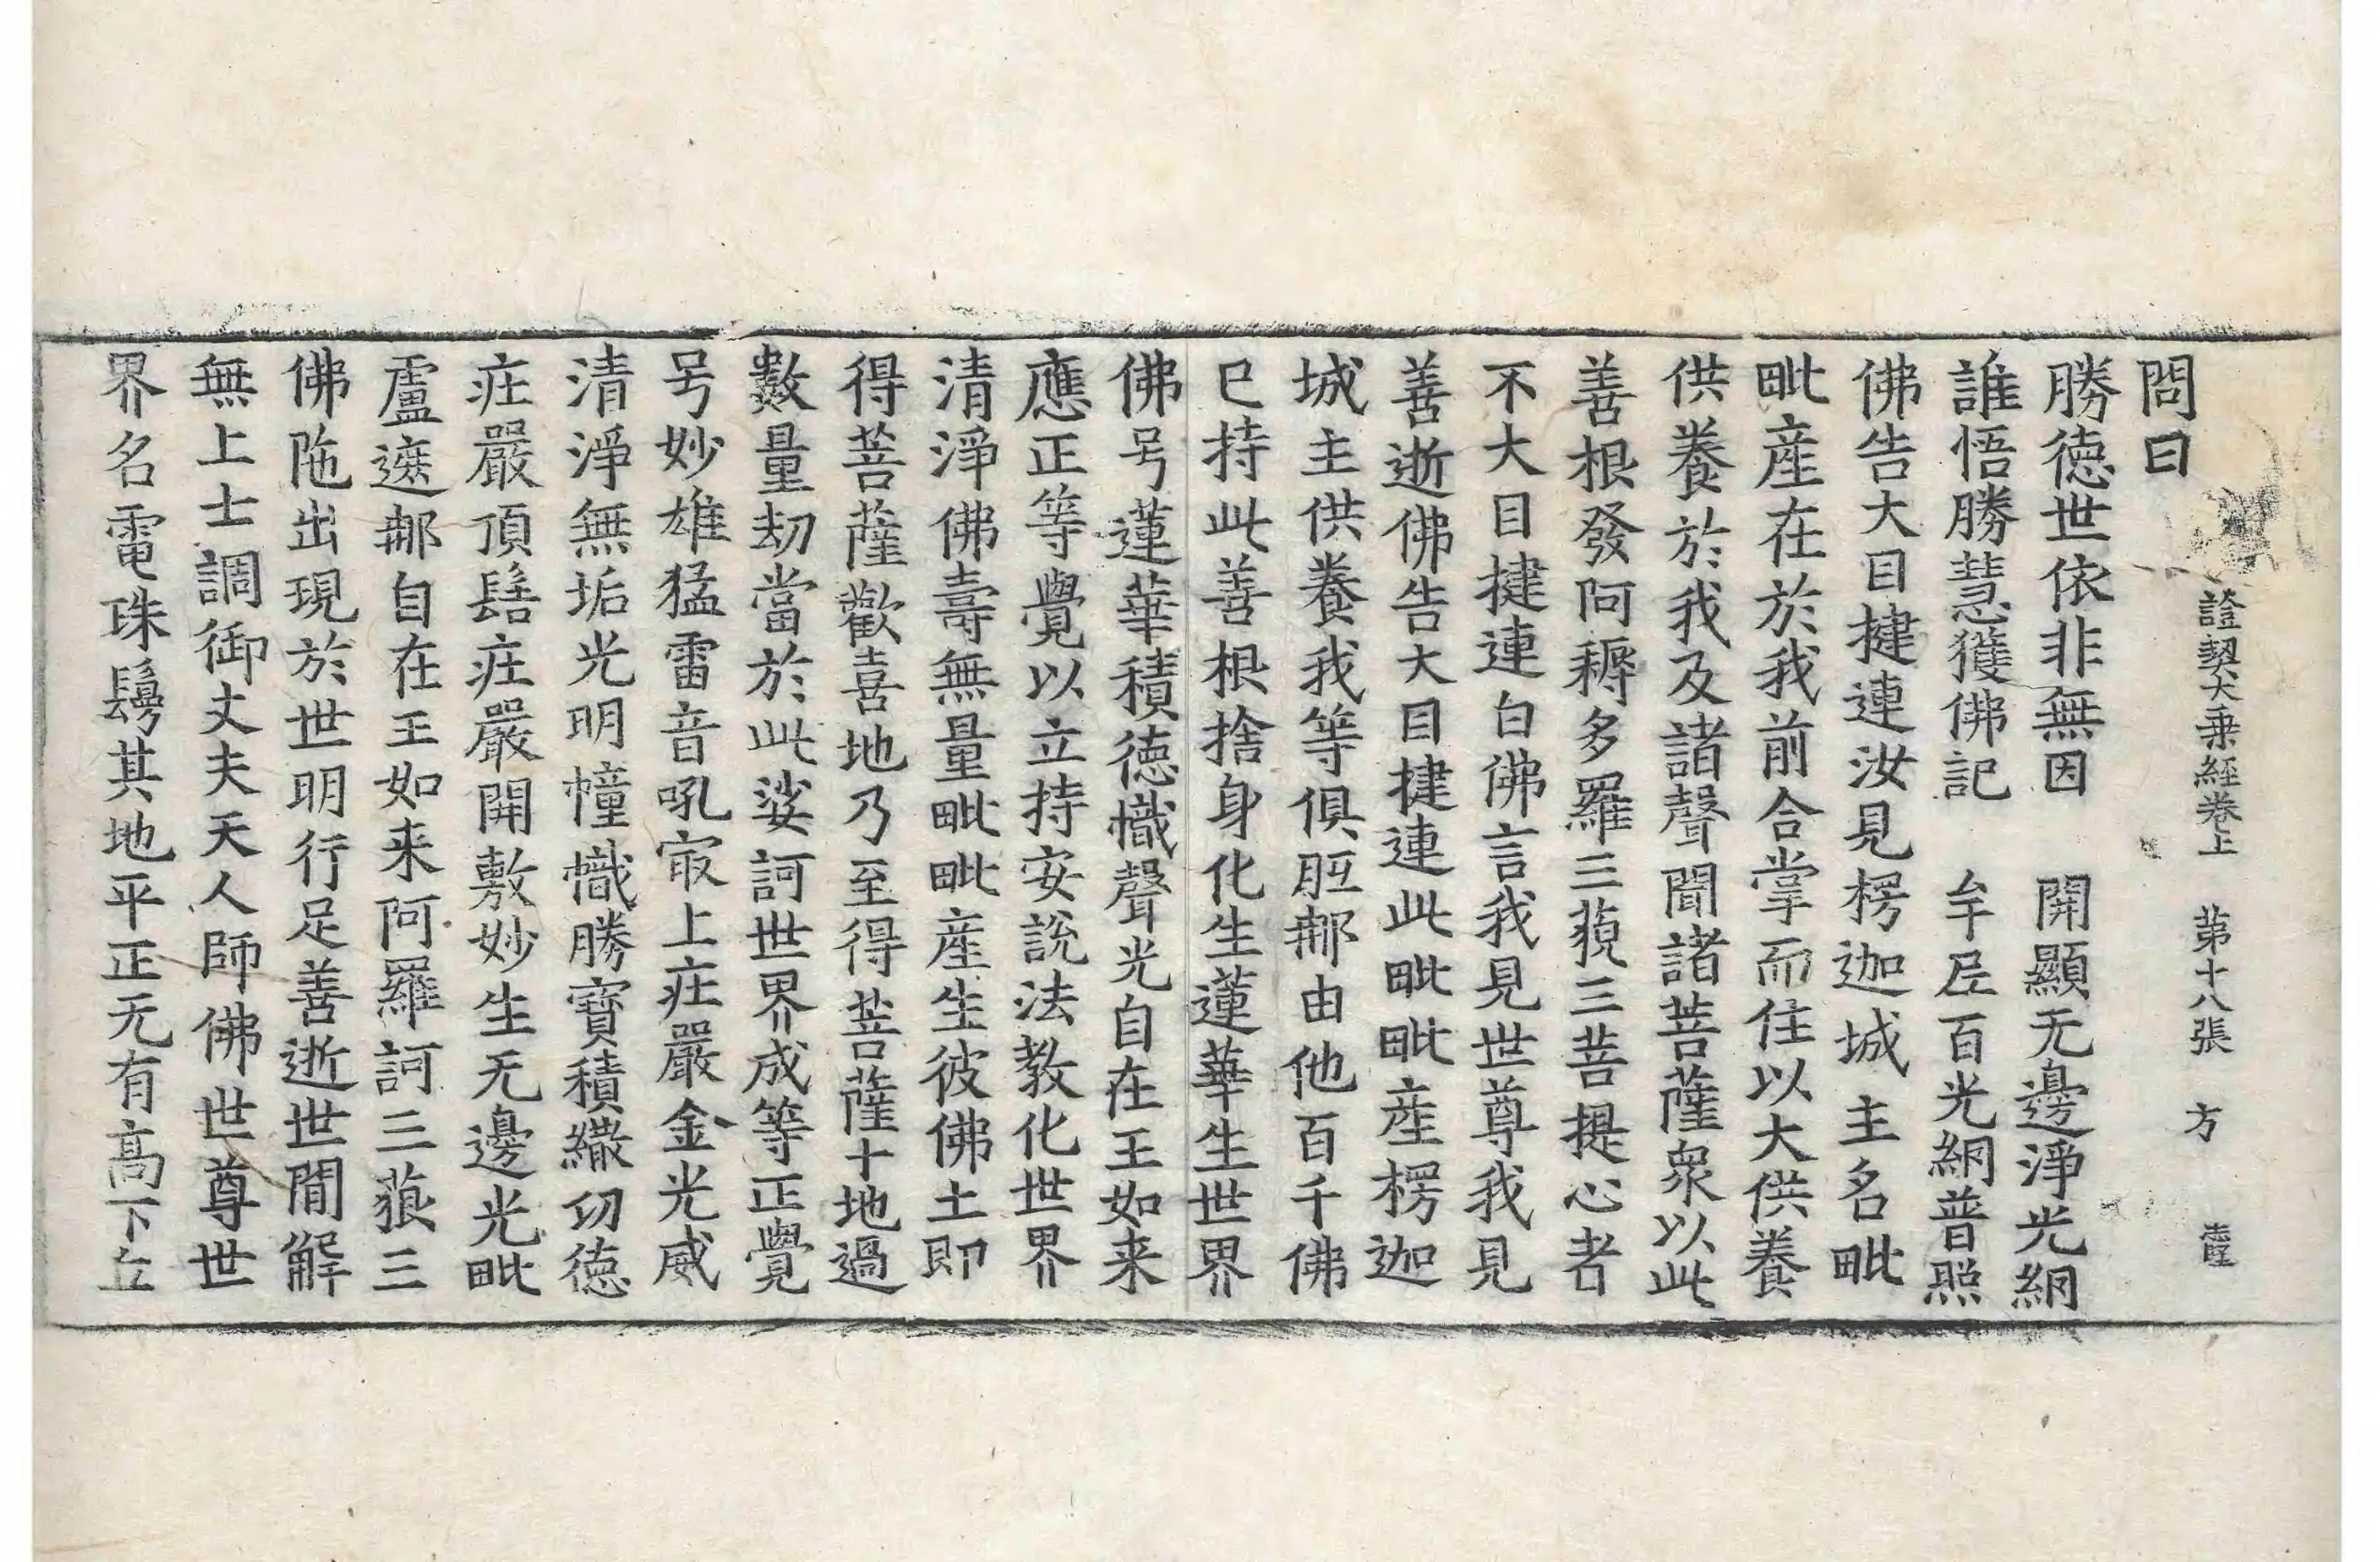 問曰
證契大乗經卷上　第十八張　方
勝徳世依非無因　開顯无邊淨光網
誰悟勝慧獲佛記　牟尼百光網普照
佛告大目揵連汝見楞迦城主名毗
毗産在於我前合掌而住以大供養
供養於我及諸聲聞諸菩薩衆以此
善根發阿耨多羅三藐三菩提心者
不大目揵連白佛言我見世尊我見
善逝佛告大目揵連此毗毗産楞迦
城主供養我等俱胝郍由他百千佛
已持此善根捨身化生蓮華生世界
佛号蓮華積徳幟聲光自在王如来
應正等覺以立持安說法教化世界
清淨佛壽無量毗毗産生彼佛土即
得菩薩歡喜地乃至得菩薩十地過
數量刼當於此娑訶世界成等正覺
号妙雄猛雷音吼㝡上疘嚴金光威
清淨無垢光明幢幟勝寶積繖㓛徳
疘嚴頂髻疘嚴開敷妙生无邊光毗
盧遮郍自在王如来阿羅訶三藐三
佛陁出現於世明行足善逝世間解
無上士調御丈夫天人師佛世尊世
界名電珠鬘其地平正无有高下丘